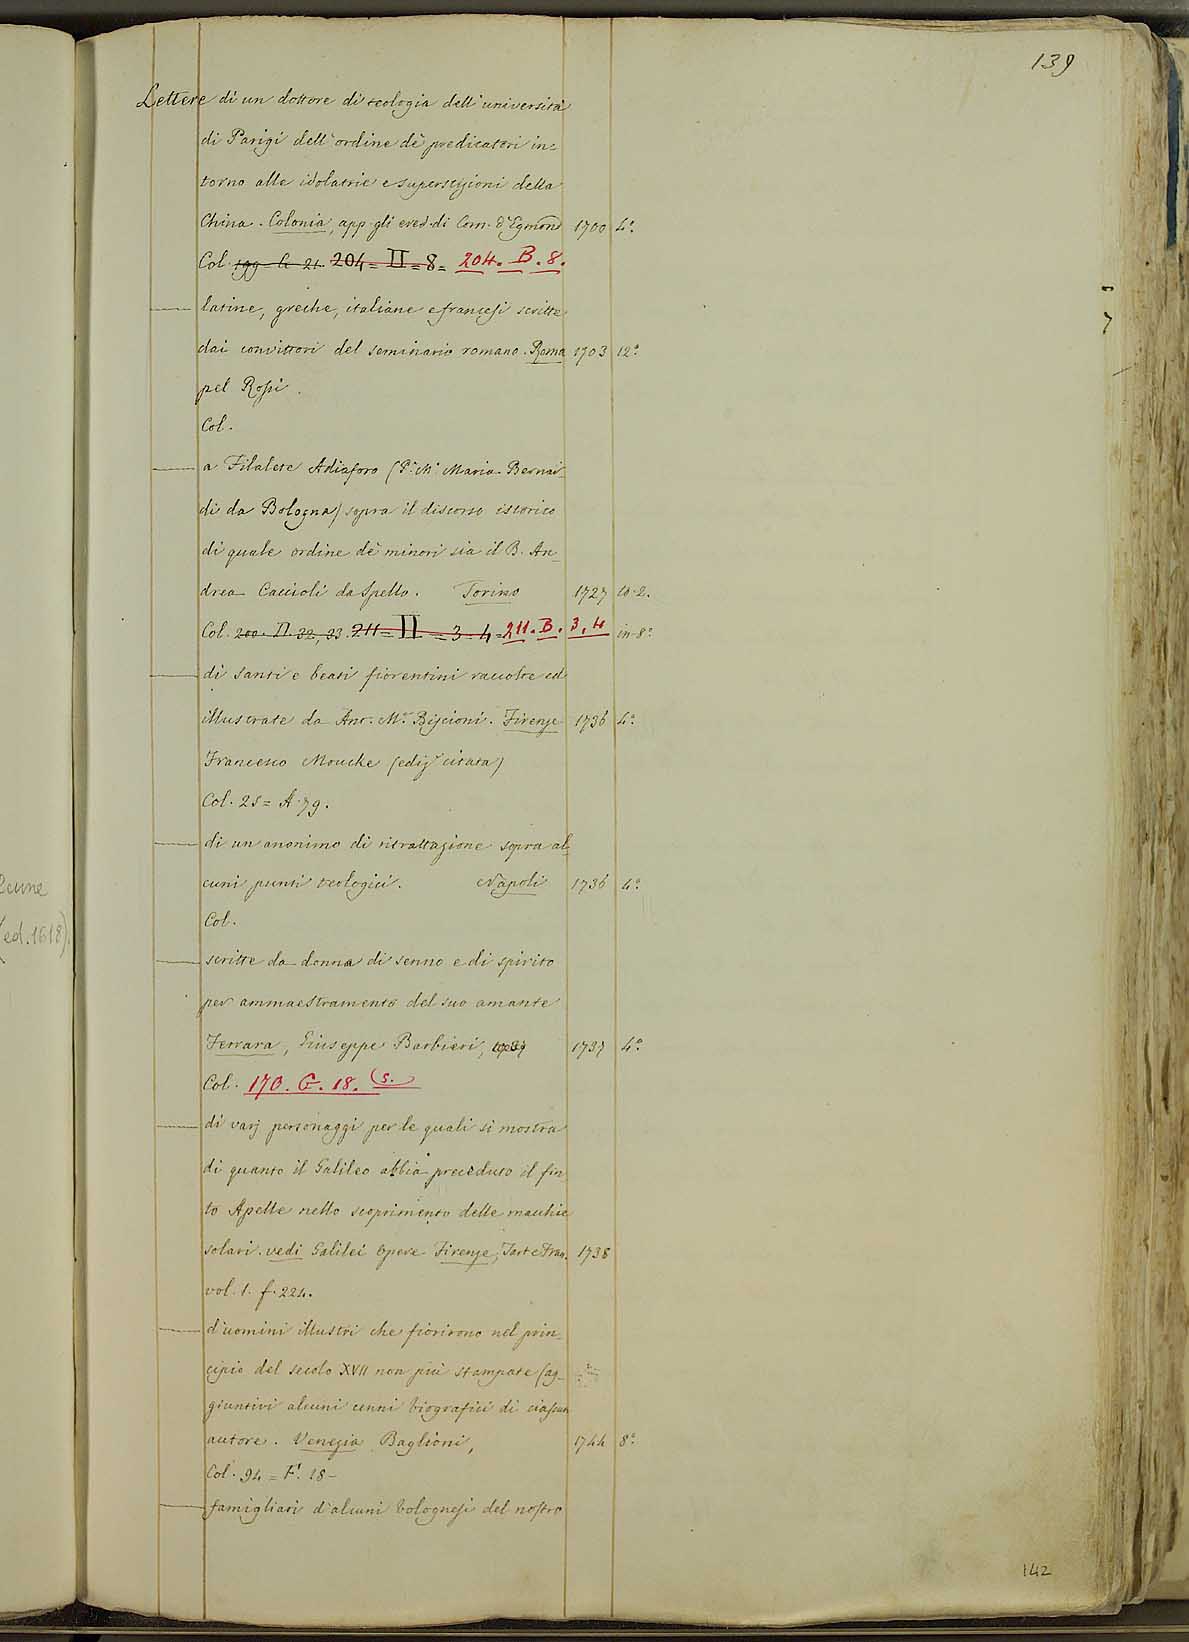 139
Lettere di un dottore di teologia dell'università
di Parigi dell'ordine dè predicatori in=
torno alle idolatrie e superstizioni della
China. Colonia, app. gli ered. di Corn. d'Egmond 1700 4°.
Col. 199 21. 204 = II = 8 = 204. B. 8.
— latine, greche, italiane e francesi scritte
dai convittori del seminario romano. Roma 1703 12°.
pel Rossi.
Col.
— a Filalete Adiaforo (P. M. Maria Bernar=
di da Bologna) sopra il discorso istorico
di quale ordine dè minori sia il B. An=
drea Caccioli da Spello. Torino 1727 to. 2.
Col. 200. II. 32, 33. 211 = II = 3. 4 = 211. B. 3, 4 in 8°.
— di santi e beati fiorentini raccolte ed
illustrate da Ant. M.ª Biscioni. Firenze 1736 4°.
Francesco Moucke (ediz.e citata)
Col. 25 = A. 79.
— di un anonimo di ritrattazione sopra al=
cuni punti teologici. Napoli 1736 4°.
Col.
— scritte da donna di senno e di spirito
per ammaestramento del suo amante
Ferrara, Giuseppe Barbieri, 1737 4°.
Col. 170. G. 18. (5.
— di varj personaggi per le quali si mostra
di quanto il Galileo abbia preceduto il fin
to Apelle nello scoprimento delle macchie
solari. vedi Galilei Opere Firenze, Tart. e Fran. 1738
vol. 1. f. 224.
— d'uomini illustri che fiorirono nel prin=
cipio del secolo XVII non più stampate (ag=
giuntivi alcuni cenni biografici di ciascun
autore. Venezia Baglioni, 1744 8°.
Col. 94 = F. 18 –
— famigliari d'alcuni bolognesi del nostro
142
(ed. 1618)